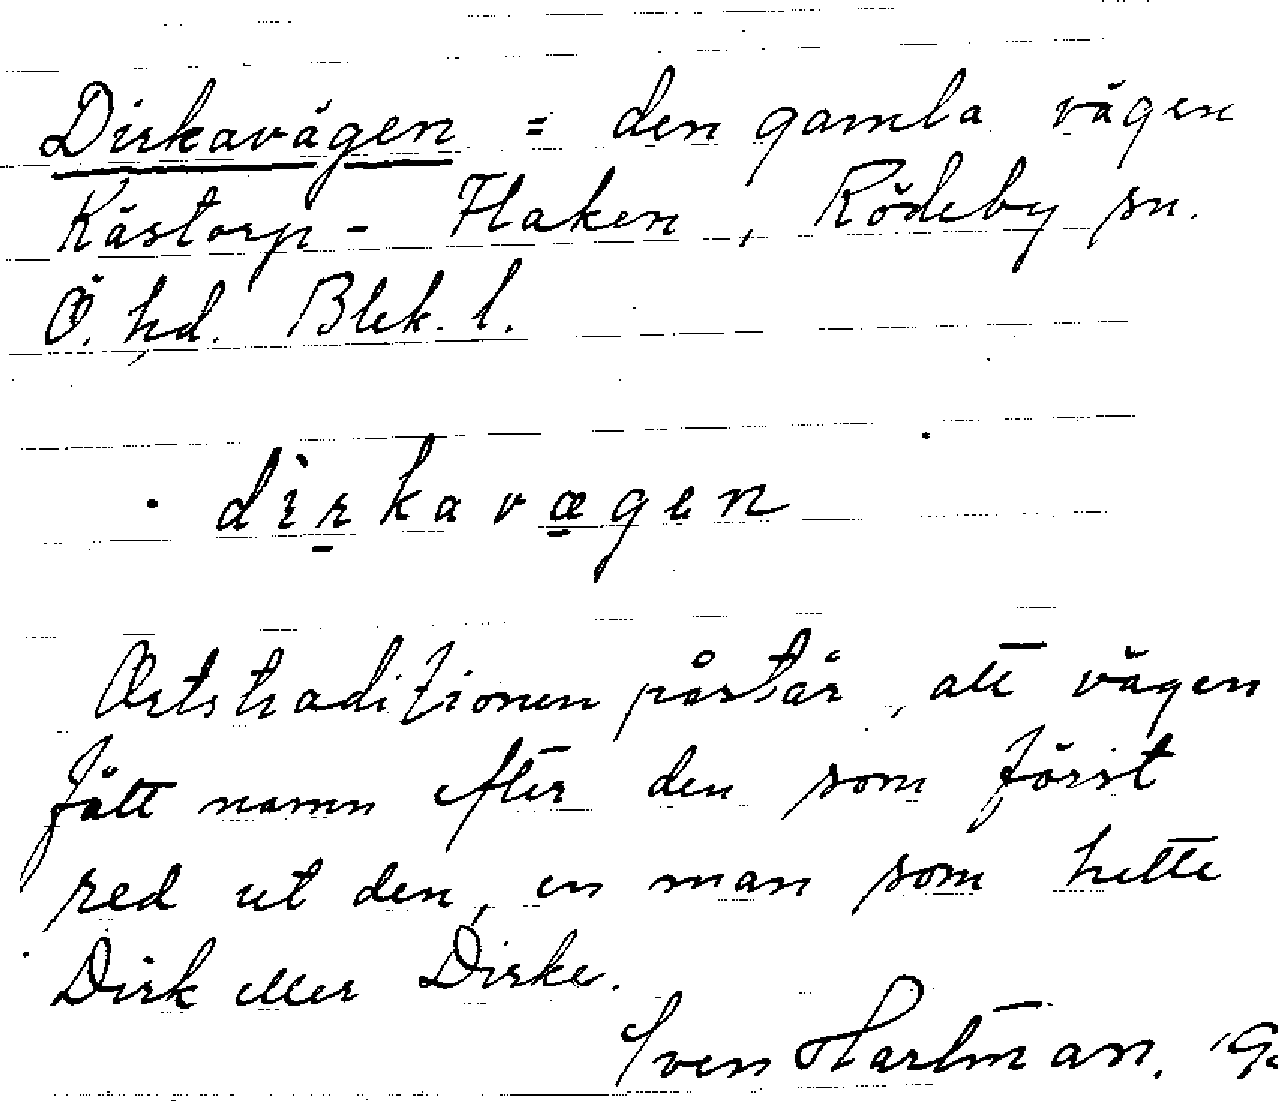 Dirkavägen = den gamla vägen
Kåstorp - Flaken, Rödeby sn.
Ö. hd. Blek. l.
dìrkavægen
Ortstraditionen påstår, att vägen
fått namn efter den som först
red ut den, en man som hette
Dirk eller Dirke.
Sven Hartman.